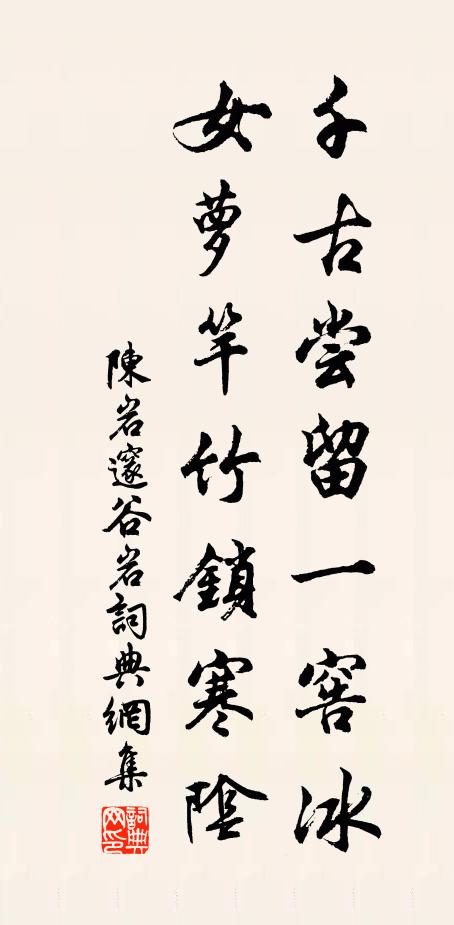 千古尝留一窖冰
女萝竿竹鎖寒陰
陳岩邃谷岩詞典網集
詞典网印